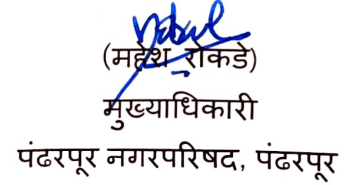 (महेश रोकडे)
मुख्याधिकारी
पंढरपूर नगरपरिषद, पंढरपूर